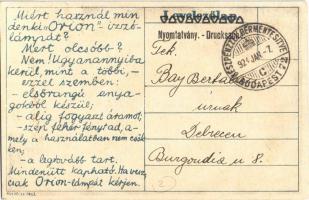 Miért használ min
denki "Orion" izzó-
lámpát?
Mert olcsóbb?
Nem! Ugyanannyiba
kerül, mint a többi, -
ezzel szemben:
- elsőrangú anya-
gokból készül;
- alig fogyaszt áramot;
- szép, fehér fényt ad, a-
mely a használatban nem csök
ken;
- a legtovább tart.
Mindenütt kapható. Ha vesz,
csak Orion-lámpát kérjen.
Levelező-Lap.
Nyomtatvány. - Drucksache.
KÉSZPÉNZZEL BÉRMENTESÍTVE
924 JAN. -7.
BUDAPEST 72
Tek.
Bay Bertalan
úrnak
Debrecen
Burgondia u 8.